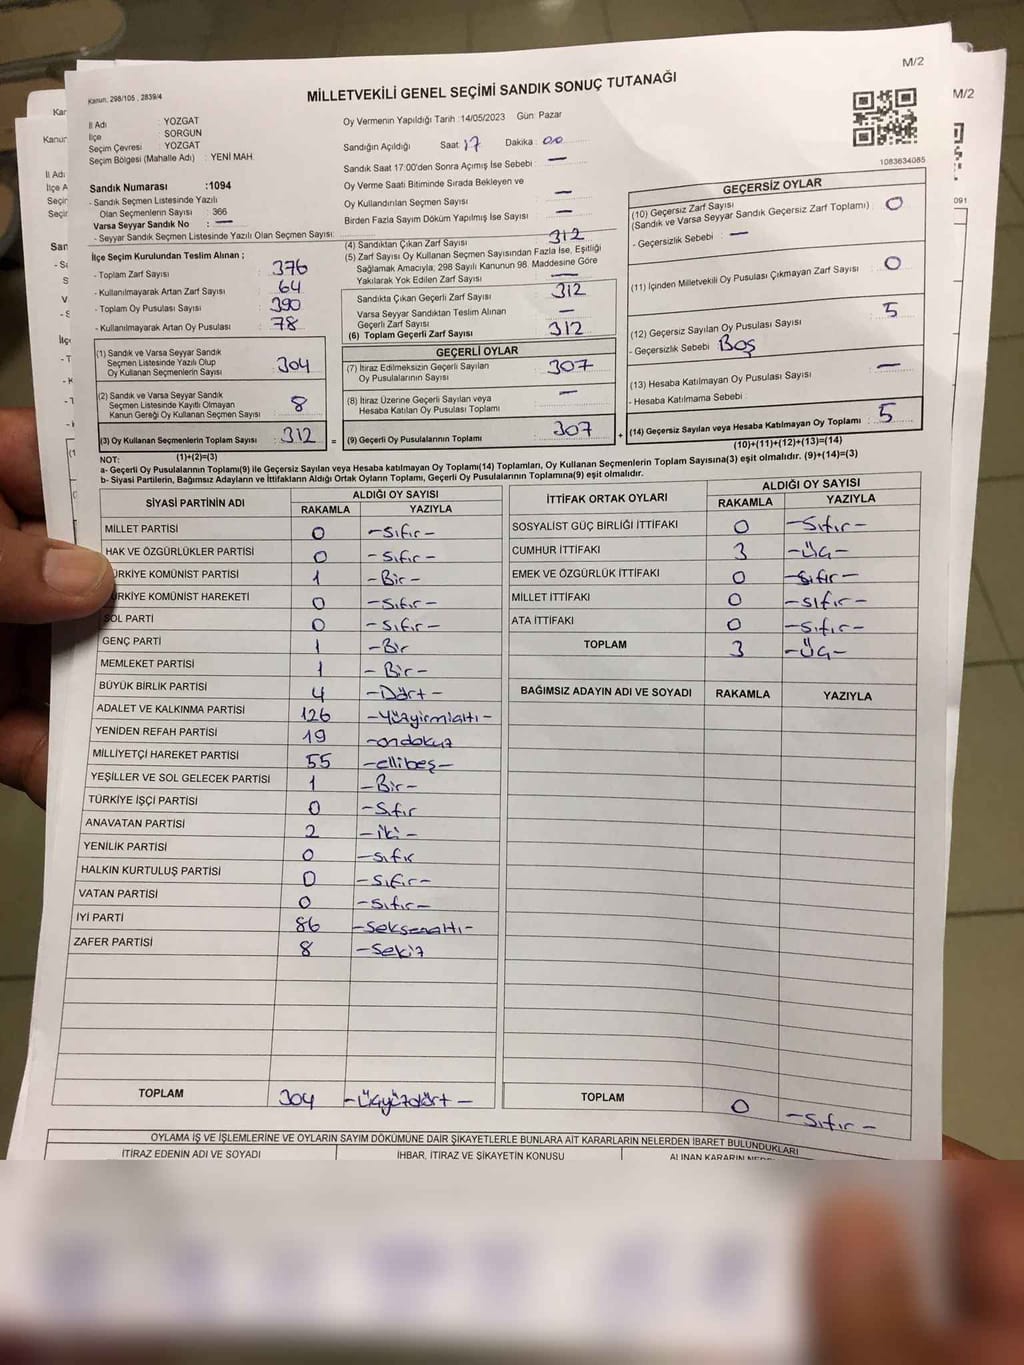 M/2
Kanun: 298/105 , 2839/4
MİLLETVEKİLİ GENEL SEÇİMİ SANDIK SONUÇ TUTANAĞI
İl Adı : YOZGAT
İlçe : SORGUN
Seçim Çevresi : YOZGAT
Seçim Bölgesi (Mahalle Adı) : YENİ MAH.
Sandık Numarası :1094
- Sandık Seçmen Listesinde Yazılı
Olan Seçmenlerin Sayısı : 366
Varsa Seyyar Sandık No : —
- Seyyar Sandık Seçmen Listesinde Yazılı Olan Seçmen Sayısı:
İlçe Seçim Kurulundan Teslim Alınan ;
- Toplam Zarf Sayısı : 376
- Kullanılmayarak Artan Zarf Sayısı : 64
- Toplam Oy Pusulası Sayısı : 390
- Kullanılmayarak Artan Oy Pusulası : 78
(1) Sandık ve Varsa Seyyar Sandık
Seçmen Listesinde Yazılı Olup
Oy Kullanan Seçmenlerin Sayısı : 304
(2) Sandık ve Varsa Seyyar Sandık
Seçmen Listesinde Kayıtlı Olmayan
Kanun Gereği Oy Kullanan Seçmen Sayısı : 8
(3) Oy Kullanan Seçmenlerin Toplam Sayısı : 312 =
(1)+(2)=(3)
Oy Vermenin Yapıldığı Tarih :14/05/2023 Gün: Pazar
Sandığın Açıldığı Saat: 17 Dakika : 00
Sandık Saat 17:00'den Sonra Açımış İse Sebebi : —
Oy Verme Saati Bitiminde Sırada Bekleyen ve
Oy Kullandırılan Seçmen Sayısı : —
Birden Fazla Sayım Döküm Yapılmış İse Sayısı : —
(4) Sandıktan Çıkan Zarf Sayısı : 312
(5) Zarf Sayısı Oy Kullanan Seçmen Sayısından Fazla İse, Eşitliği
Sağlamak Amacıyla; 298 Sayılı Kanunun 98. Maddesine Göre
Yakılarak Yok Edilen Zarf Sayısı : —
Sandıkta Çıkan Geçerli Zarf Sayısı : 312
Varsa Seyyar Sandıktan Teslim Alınan
Geçerli Zarf Sayısı : —
(6) Toplam Geçerli Zarf Sayısı : 312
GEÇERLİ OYLAR
(7) İtiraz Edilmeksizin Geçerli Sayılan
Oy Pusulalarının Sayısı : 307
(8) İtiraz Üzerine Geçerli Sayılan veya
Hesaba Katılan Oy Pusulası Toplamı : —
(9) Geçerli Oy Pusulalarının Toplamı : 307 +
1083634085
GEÇERSİZ OYLAR
(10) Geçersiz Zarf Sayısı
(Sandık ve Varsa Seyyar Sandık Geçersiz Zarf Toplamı) : 0
- Geçersizlik Sebebi : —
(11) İçinden Milletvekili Oy Pusulası Çıkmayan Zarf Sayısı : 0
(12) Geçersiz Sayılan Oy Pusulası Sayısı : 5
- Geçersizlik Sebebi : Boş
(13) Hesaba Katılmayan Oy Pusulası Sayısı : —
- Hesaba Katılmama Sebebi :
(14) Geçersiz Sayılan veya Hesaba Katılmayan Oy Toplamı : 5
(10)+(11)+(12)+(13)=(14)
NOT:
a- Geçerli Oy Pusulalarının Toplamı(9) ile Geçersiz Sayılan veya Hesaba katılmayan Oy Toplamı(14) Toplamları, Oy Kullanan Seçmenlerin Toplam Sayısına(3) eşit olmalıdır. (9)+(14)=(3)
b- Siyasi Partilerin, Bağımsız Adayların ve İttifakların Aldığı Ortak Oyların Toplamı, Geçerli Oy Pusulalarının Toplamına(9) eşit olmalıdır.
SİYASİ PARTİNİN ADI ALDIĞI OY SAYISI
RAKAMLA YAZIYLA
MİLLET PARTİSİ 0 -Sıfır-
HAK VE ÖZGÜRLÜKLER PARTİSİ 0 -Sıfır-
ÜRKİYE KOMÜNİST PARTİSİ 1 -Bir-
ÜRKİYE KOMÜNİST HAREKETİ 0 -Sıfır-
SOL PARTİ 0 -Sıfır-
GENÇ PARTİ 1 -Bir
MEMLEKET PARTİSİ 1 -Bir-
BÜYÜK BİRLİK PARTİSİ 4 -Dört-
ADALET VE KALKINMA PARTİSİ 126 -Yüzyirmialtı-
YENİDEN REFAH PARTİSİ 19 -ondokuz
MİLLİYETÇİ HAREKET PARTİSİ 55 -ellibeş-
YEŞİLLER VE SOL GELECEK PARTİSİ 1 -Bir-
TÜRKİYE İŞÇİ PARTİSİ 0 -Sıfır
ANAVATAN PARTİSİ 2 -iki-
YENİLİK PARTİSİ 0 -sıfır
HALKIN KURTULUŞ PARTİSİ 0 -Sıfır-
VATAN PARTİSİ 0 -sıfır-
İYİ PARTİ 86 -Seksenaltı-
ZAFER PARTİSİ 8 -Sekiz
TOPLAM 304 -Üçyüzdört-
İTTİFAK ORTAK OYLARI ALDIĞI OY SAYISI
RAKAMLA YAZIYLA
SOSYALİST GÜÇ BİRLİĞİ İTTİFAKI 0 -Sıfır-
CUMHUR İTTİFAKI 3 -Üç-
EMEK VE ÖZGÜRLÜK İTTİFAKI 0 -Sıfır-
MİLLET İTTİFAKI 0 -sıfır-
ATA İTTİFAKI 0 -sıfır-
TOPLAM 3 -Üç-
BAĞIMSIZ ADAYIN ADI VE SOYADI RAKAMLA YAZIYLA
TOPLAM 0 -Sıfır-
OYLAMA İŞ VE İŞLEMLERİNE VE OYLARIN SAYIM DÖKÜMÜNE DAİR ŞİKAYETLERLE BUNLARA AİT KARARLARIN NELERDEN İBARET BULUNDUKLARI
İTİRAZ EDENİN ADI VE SOYADI İHBAR, İTİRAZ VE ŞİKAYETİN KONUSU ALINAN KARARIN
M/2
091